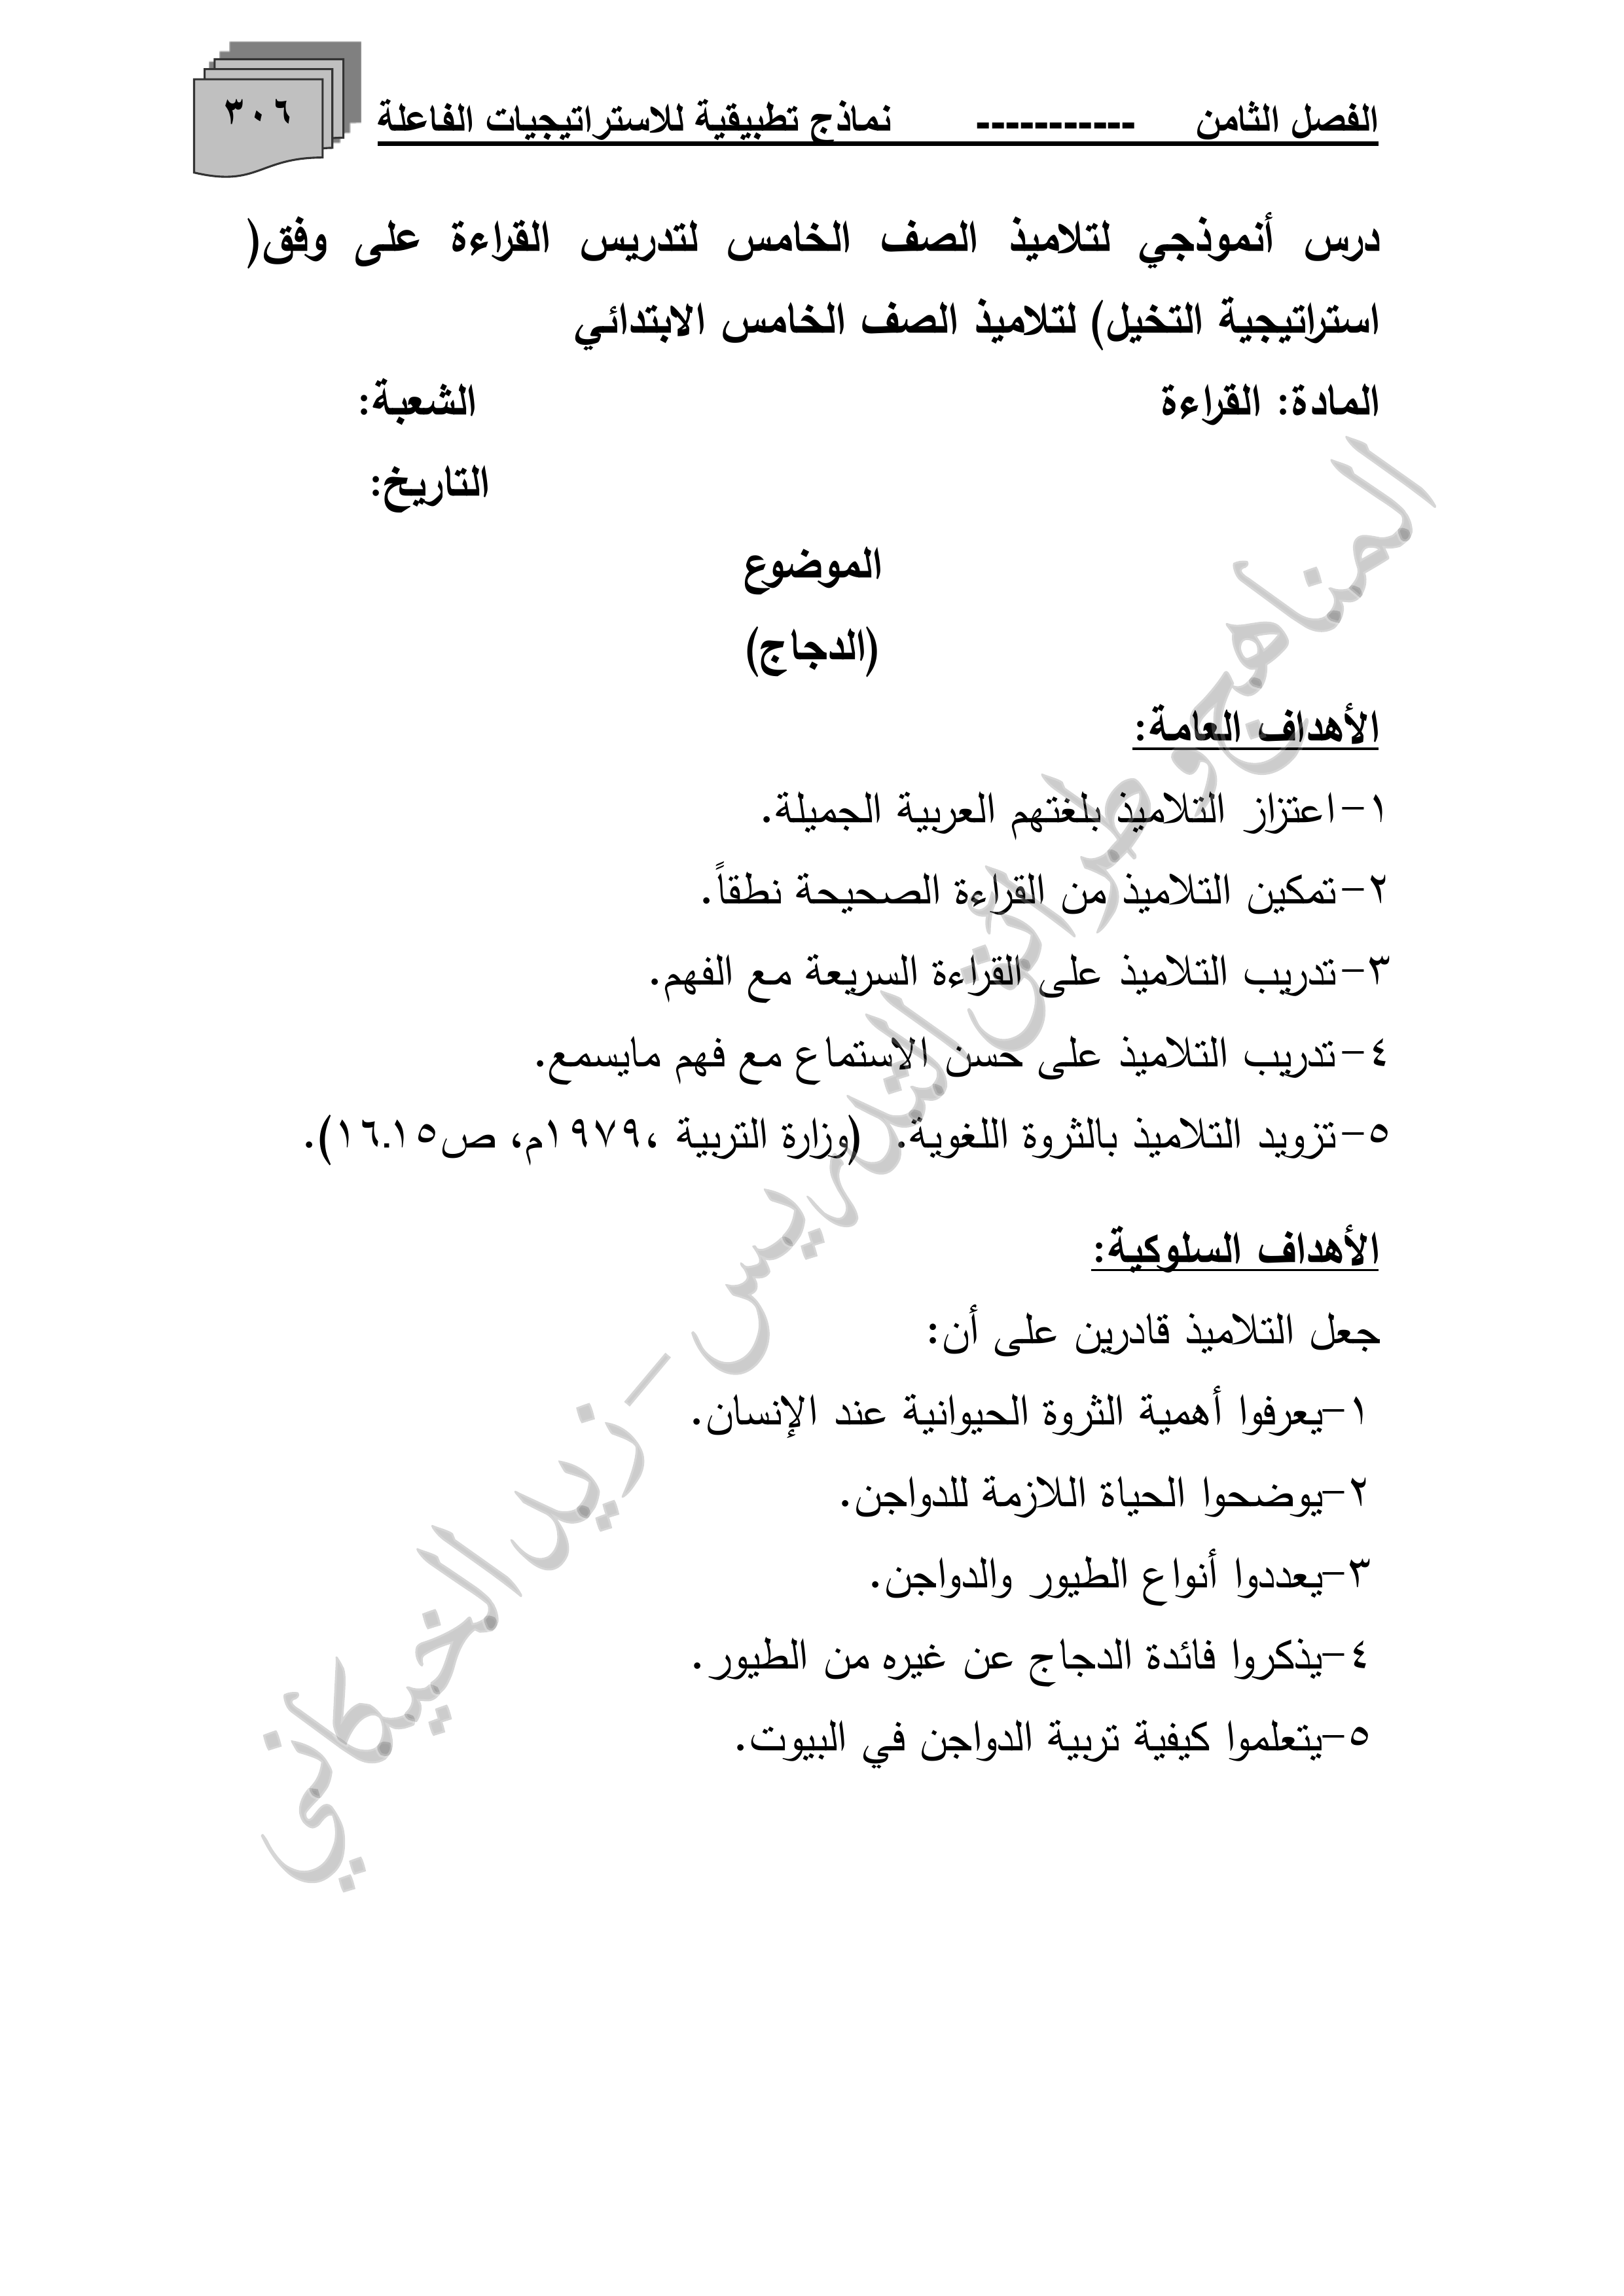 الفصل الثامن ----------- نماذج تطبيقية للاستراتيجيات الفاعلة
٣٠٦
درس أنموذجي لتلاميذ الصف الخامس لتدريس القراءة على وفق(
استراتيجية التخيل) لتلاميذ الصف الخامس الابتدائي
المادة: القراءة الشعبة:
التاريخ:
الموضوع
(الدجاج)
الأهداف العامة:
١-اعتزاز التلاميذ بلغتهم العربية الجميلة.
٢-تمكين التلاميذ من القراءة الصحيحة نطقاً.
٣-تدريب التلاميذ على القراءة السريعة مع الفهم.
٤-تدريب التلاميذ على حسن الاستماع مع فهم مايسمع.
٥-تزويد التلاميذ بالثروة اللغوية. (وزارة التربية ،١٩٧٩م، ص١٥ـ١٦).
الأهداف السلوكية:
جعل التلاميذ قادرين على أن:
١-يعرفوا أهمية الثروة الحيوانية عند الإنسان.
٢-يوضحوا الحياة اللازمة للدواجن.
٣-يعددوا أنواع الطيور والدواجن.
٤-يذكروا فائدة الدجاج عن غيره من الطيور.
٥-يتعلموا كيفية تربية الدواجن في البيوت.
المناهج وطرائق التدريس - زيد الخيكاني